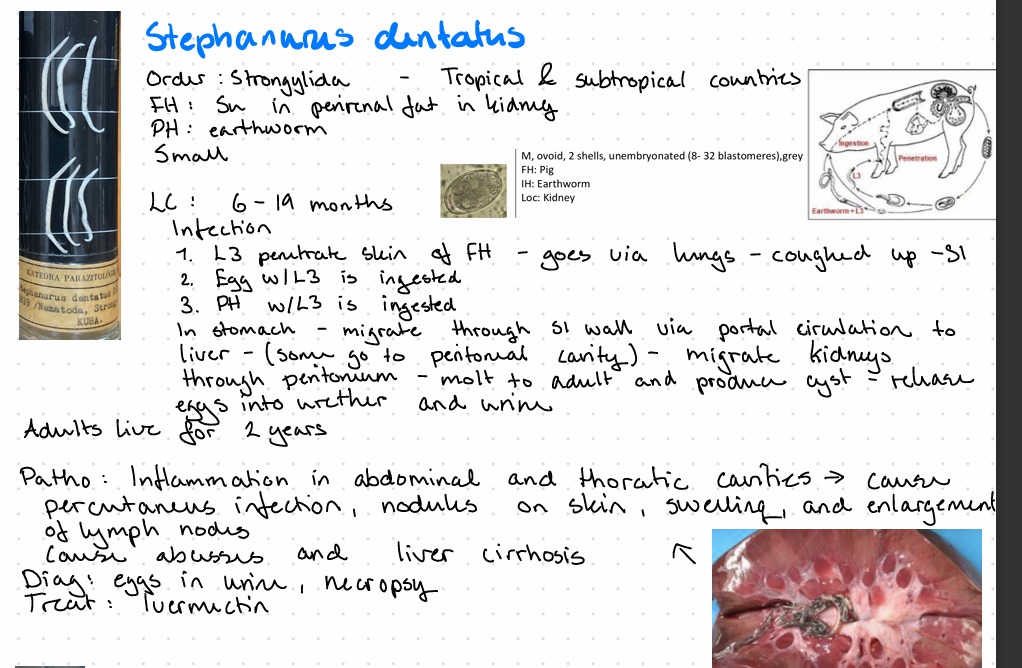 Stephanurus dentatus
Order : Strongylida - Tropical & subtropical countries
FH : Su in perirenal fat in kidney
PH : earthworm
Small
M, ovoid, 2 shells, unembryonated (8- 32 blastomeres),grey
FH: Pig
IH: Earthworm
Loc: Kidney
Ingestion
Penetration
L3
Earthworm + L3
LC : 6 - 19 months
Infection
1. L3 penetrate skin of FH - goes via lungs - coughed up - SI
2. Egg w/L3 is ingested
3. PH w/L3 is ingested
In stomach - migrate through SI wall via portal circulation to
liver - (some go to peritoneal cavity) - migrate kidneys
through peritonium - molt to adult and produce cyst - release
eggs into urether and urine
Adults live for 2 years
KATEDRA PARAZITOLÓGIE
Stephanurus dentatus
/Nematoda, Strong
KUBA.
Patho : Inflammation in abdominal and thoratic cavities → cause
percutaneus infection, nodules on skin, swelling, and enlargement
of lymph nodes
cause abscesses and liver cirrhosis
Diag : eggs in urine, necropsy
Treat : Ivermectin